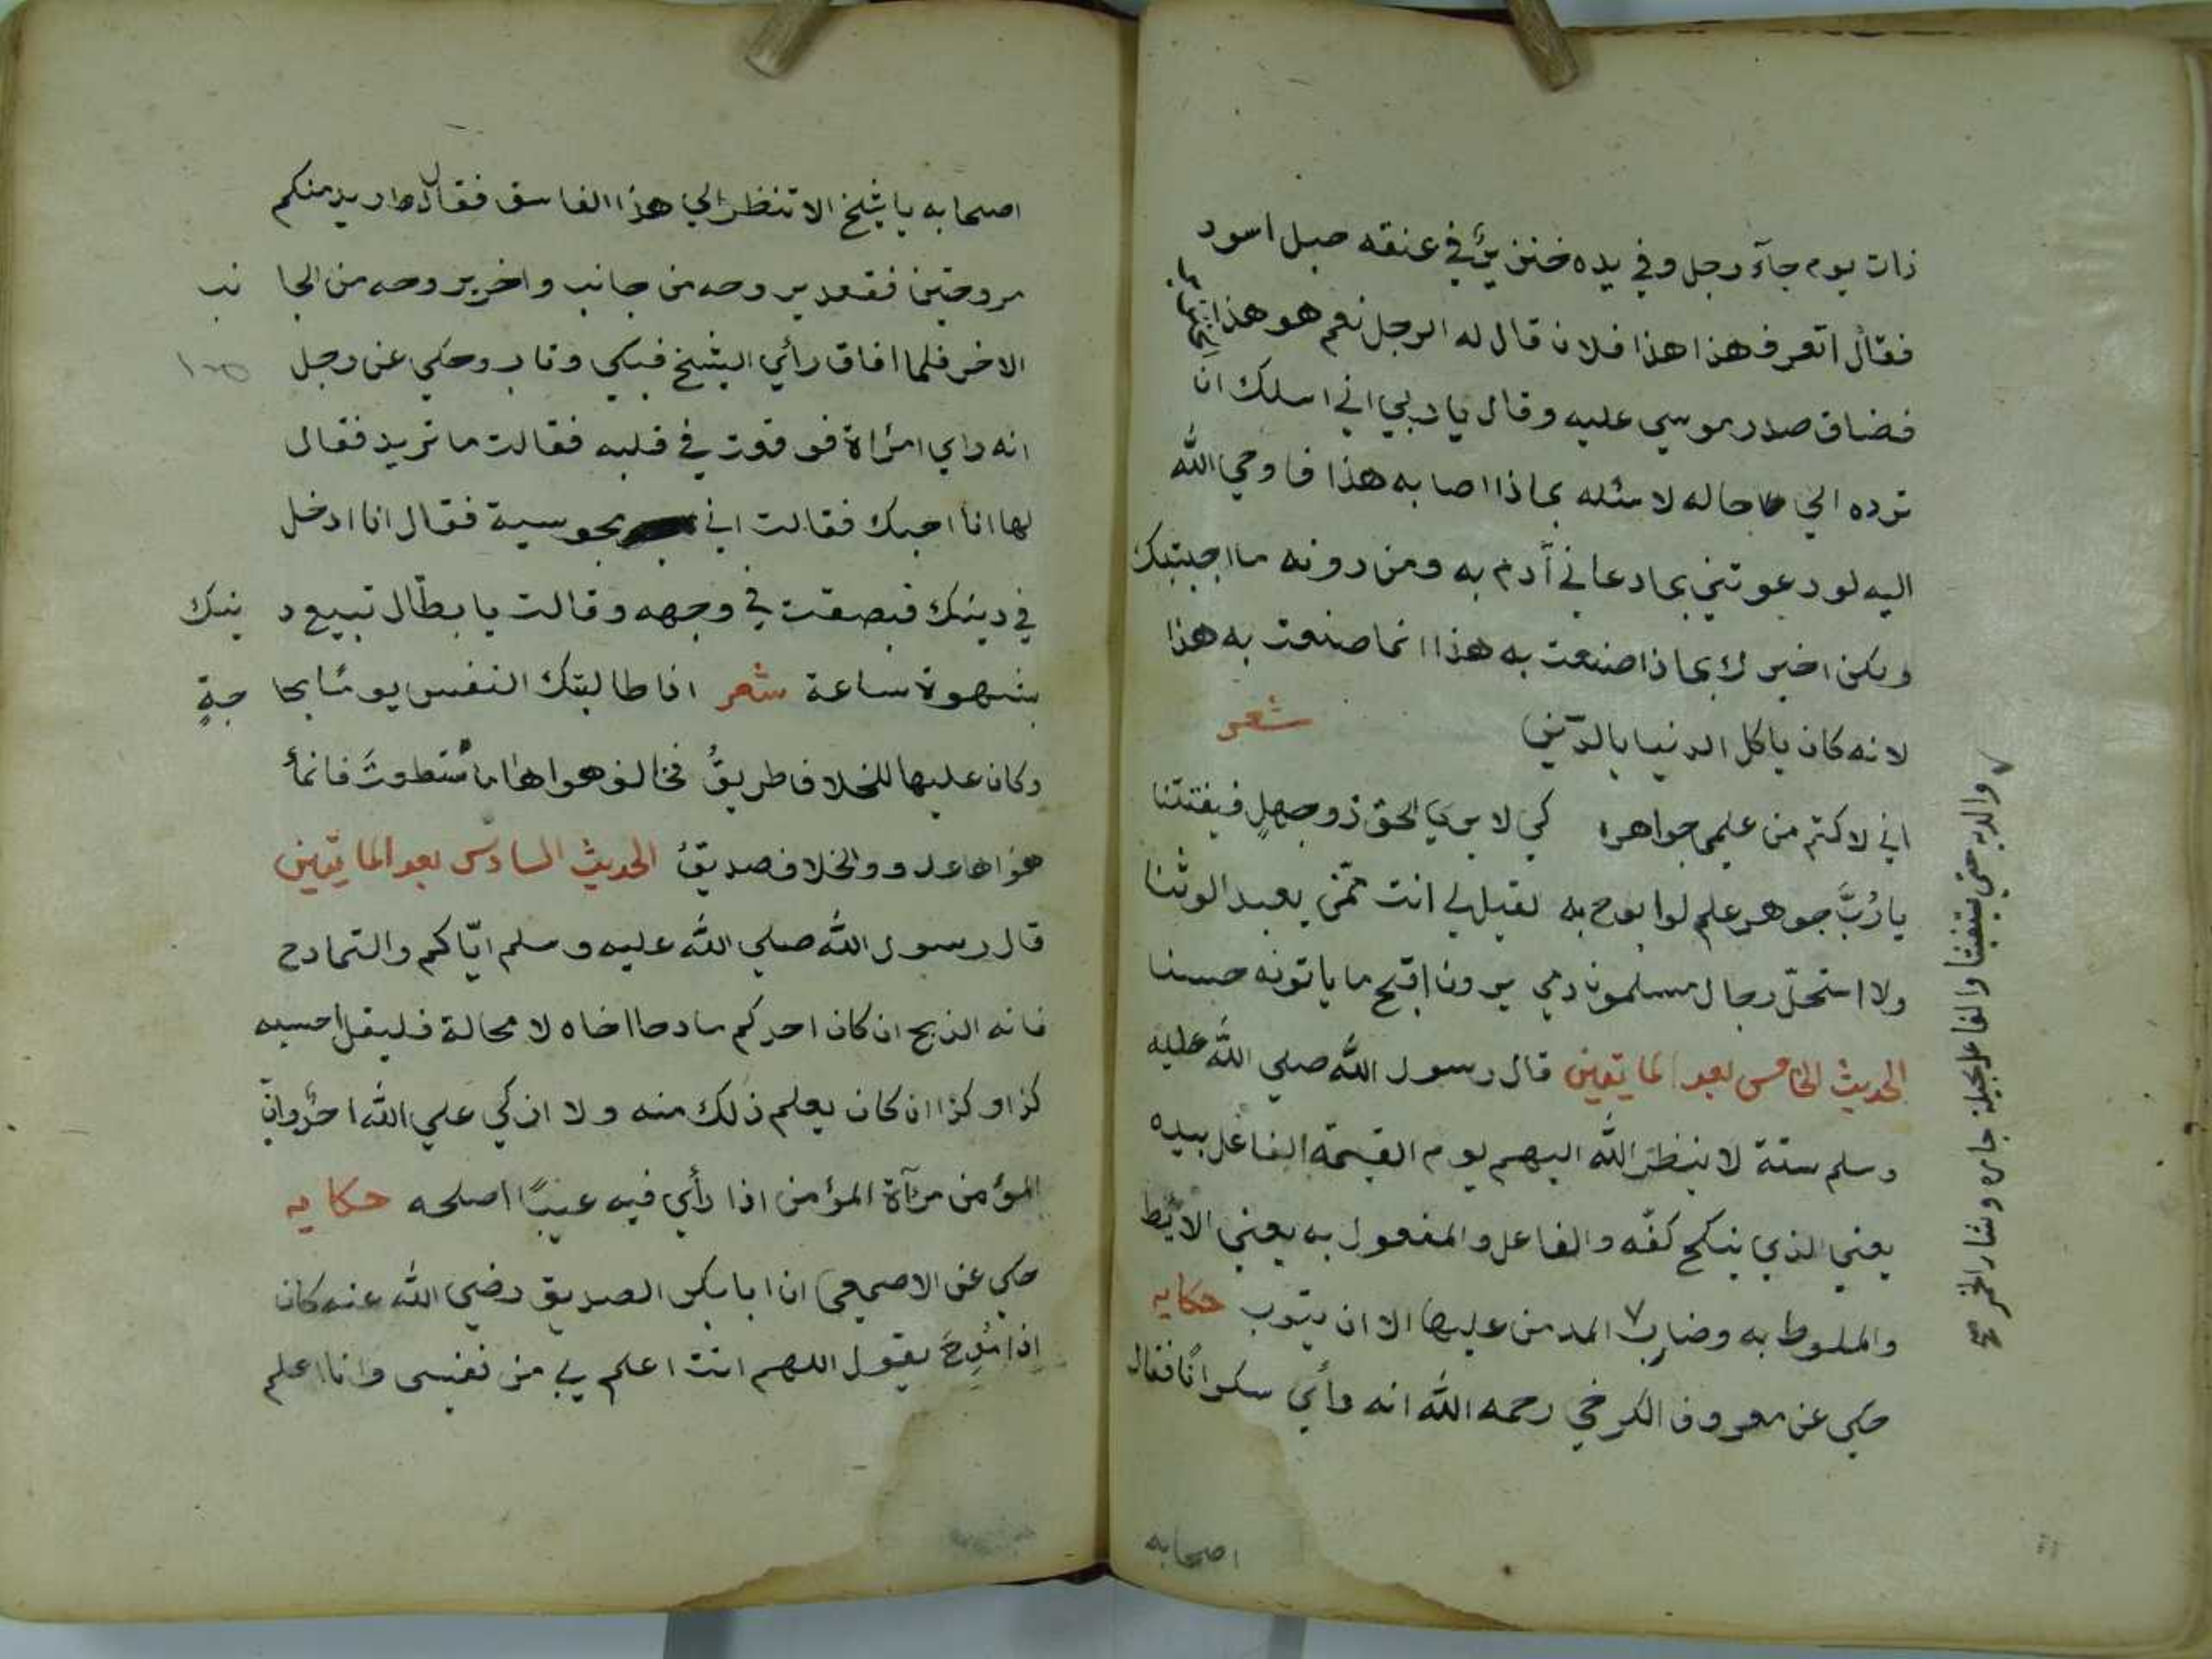 ذات يوم جآء رجل وفي يده خنزيرٌ في عنقه حبل اسود
فقال اتعرف هذا هذا فلان قال له الرجل نعم هو هذا
فضاق صدر موسي عليه وقال يا ربي اني اسلك ان
ترده الي حاله لاسئله بماذا اصابه هذا فاوحي الله
اليه لو دعوتني بما دعاني آدم به ومن دونه ما اجبتك
ولكن اخبرك بماذا صنعت به هذا انما صنعت به هذا
لانه كان ياكل الدنيا بالدّين شعر
اني لاكتم من علمي جواهره كي لا يري الحق ذو جهلٍ فيفتتنا
يا رُبَّ جوهر علم لو ابوح به لقيل لي انت ممّن يعبد الوثنا
ولا استحلّ رجال مسلمون دمي يرون اقبح ما ياتونه حسنا
الحديث الخامس بعد المايتين قال رسول الله صلي الله عليه
وسلم ستة لا ينظر الله اليهم يوم القيمة الفاعل بيده
يعني الذي ينكح كفّه والفاعل والمفعول به يعني الائط
والملوط به وضارب المدمن عليها الا ان يتوب حكايه
حكي عن معروف الكرخي رحمه الله انه رأي سكرانًا فقال
والديه حتي يستغيثا والفاعل بحليلة جاره وشارب الخمر صح
اصحابه
اصحابه يا شيخ الا تنظر الي هذا الفاسق فقال اريد منكم
مروحتين فقعد يروحه من جانب واخر يروحه من الجا نب
الاخر فلما افاق رأي الشيخ فبكي وتاب وحكي عن رجل
انه راي امرأة فوقعت في قلبه فقالت ما تريد فقال
لها انا احبك فقالت اني مجوسية فقال انا ادخل
في دينك فبصقت في وجهه وقالت يا بطّال تبيع د ينك
بشهوة ساعة شعر اذا طالبتك النفس يومًا بحا جةٍ
وكان عليها للخلاف طريقُ فخالف هواها ما استطعتَ فانمأ
هواها عدو والخلاف صديقُ الحديث السادس بعد المايتين
قال رسول الله صلي الله عليه وسلم ايّاكم والتمادح
فانه الذبح ان كان احدكم مادحا اخاه لا محالة فليقل احسبه
كذا وكذا ان كان يعلم ذلك منه ولا ازكي علي الله احدٌ وانّ
المؤمن مرآة المؤمن اذا رأي فيه عيبًا اصلحه حكايه
حكي عن الاصمعي ان ابا بكر الصديق رضي الله عنه كان
اذا مُدِحَ يقول اللهم انت اعلم بي من نفسي وانا اعلم